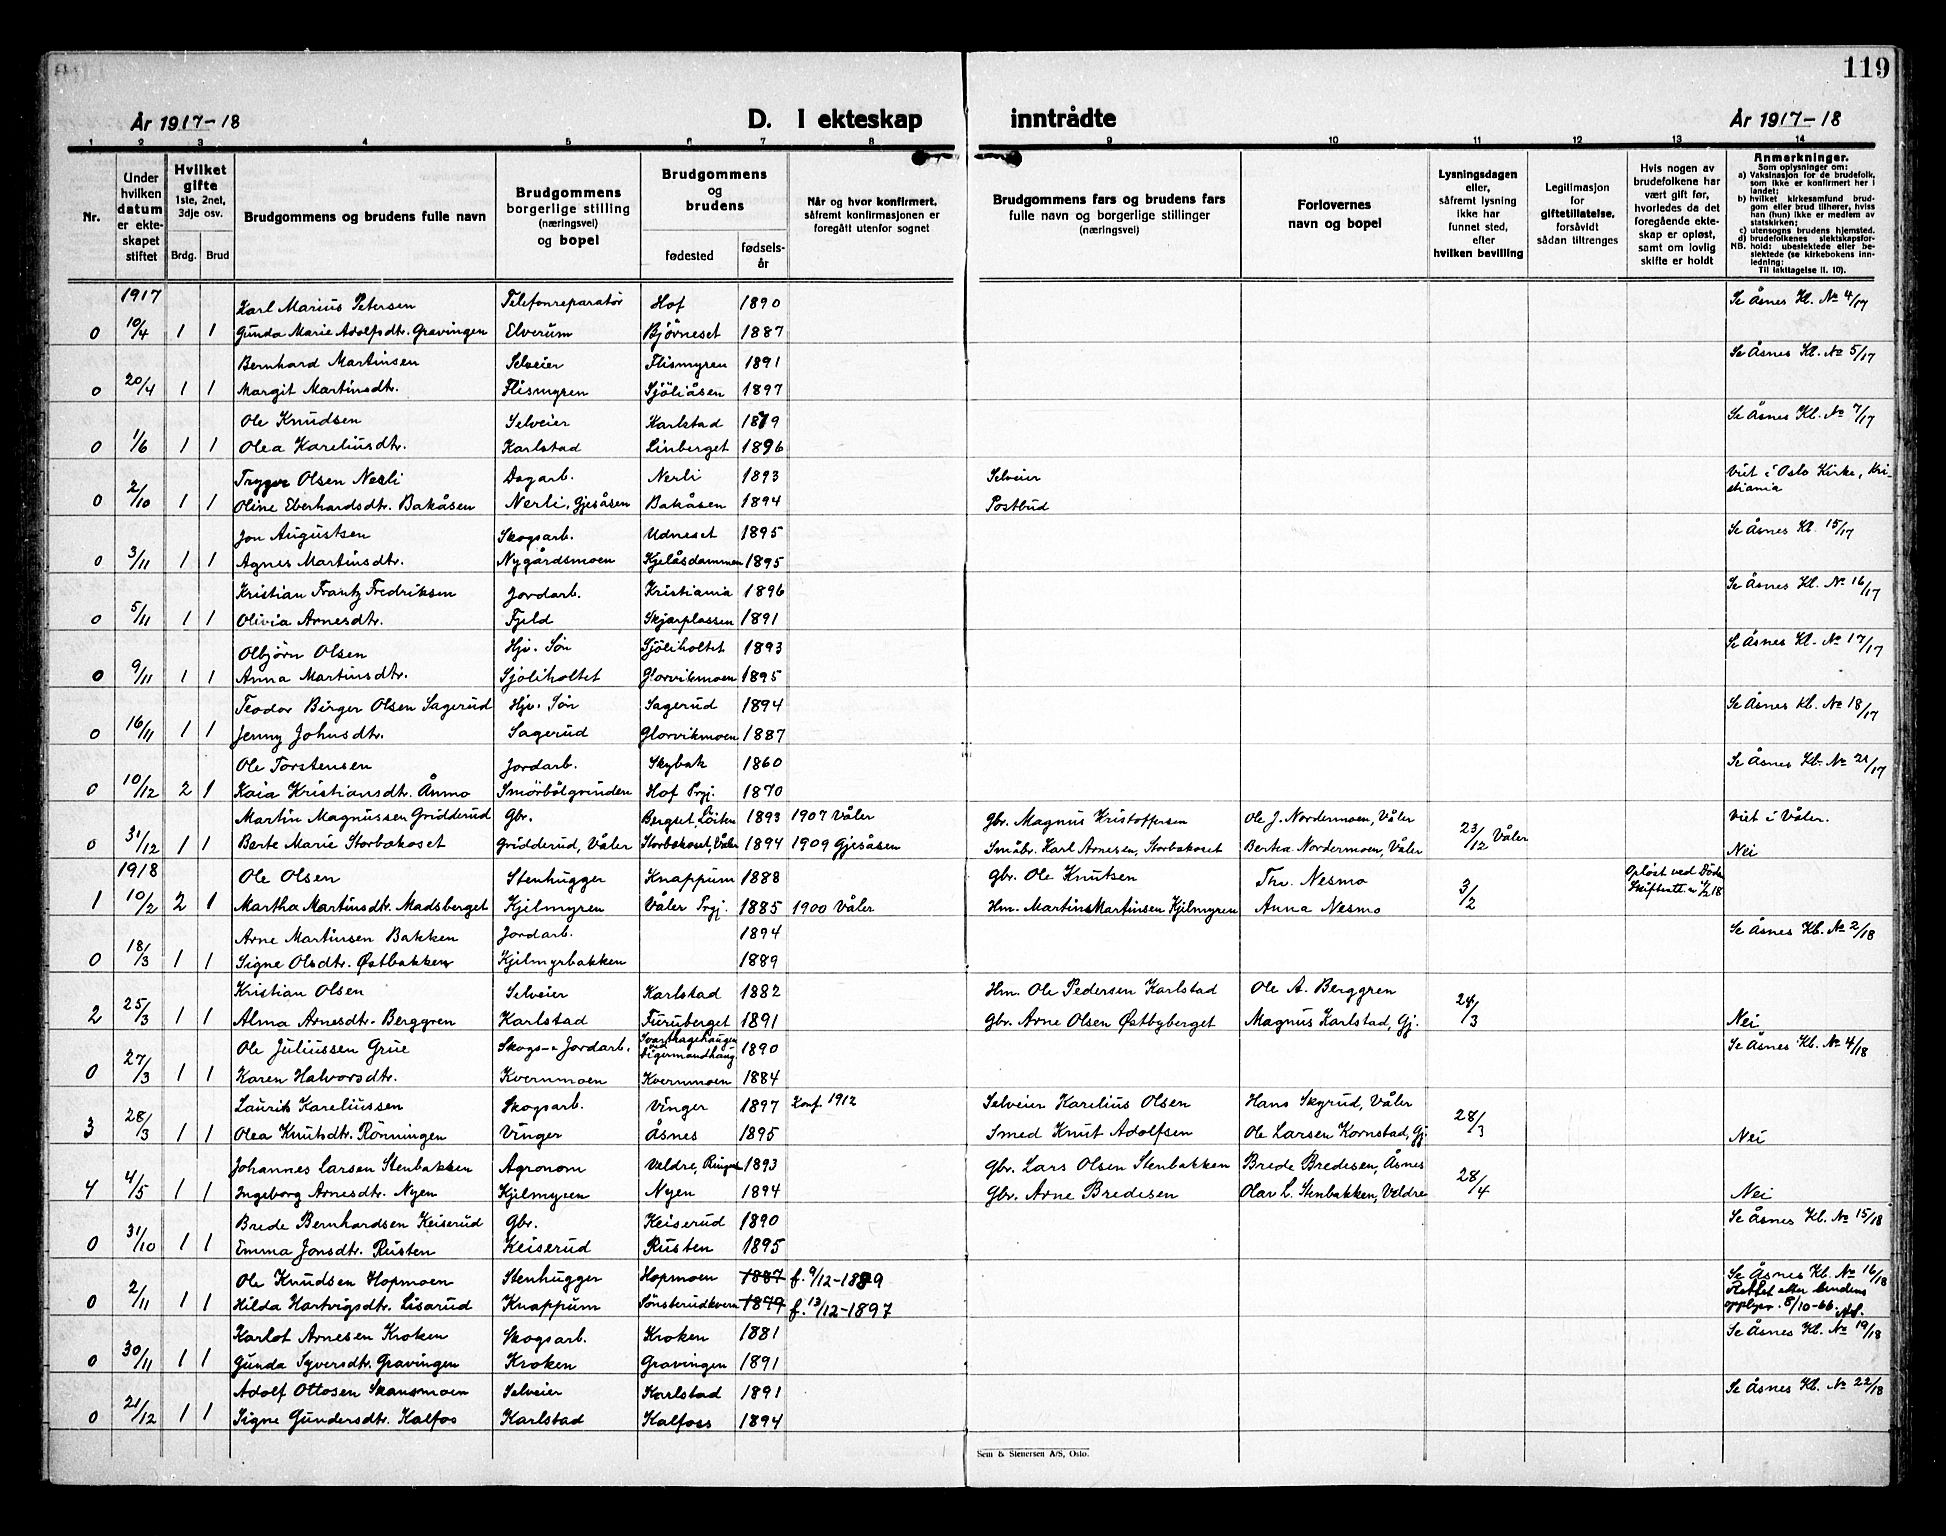 119
År 1917-18
D. I ekteskap inntrådte
År 1917-18
1 2 3 4 5 6 7 8 9 10 11 12 13 14
Nr.
Under hvilken datum er ekteskapet stiftet
Hvilket gifte 1ste, 2net, 3dje osv.
Brdg. Brud
Brudgommens og brudens fulle navn
Brudgommens borgerlige stilling (næringsvei) og bopel
Brudgommens og brudens
fødested
fødselsår
Når og hvor konfirmert, såfremt konfirmasjonen er foregått utenfor sognet
Brudgommens fars og brudens fars fulle navn og borgerlige stillinger (næringsvei)
Forlovernes navn og bopel
Lysningsdagen eller, såfremt lysning ikke har funnet sted, efter hvilken bevilling
Legitimasjon for giftetillatelse, forsåvidt sådan tiltrenges
Hvis nogen av brudefolkene har vært gift før, hvorledes da det foregående ekteskap er opløst, samt om lovlig skifte er holdt
Anmerkninger.
Som oplysninger om:
a) Vaksinasjon for de brudefolk, som ikke er konfirmert her i landet;
b) hvilket kirkesamfund brudgom eller brud tilhører, hviss han (hun) ikke er medlem av statskirken;
c) utensogns brudens hjemsted.
d) brudefolkenes slektskapsforhold: ubeslektede eller beslektede (se kirkebokens innledning:
NB. Til iakttagelse II. 10).
1917 Karl Marius Petersen Telefonreparatør Hof 1890 Se Åsnes Kl. No 4/17
0 10/4 1 1 Gunda Marie Adolfsdtr. Gravingen Elverum Bjørneset 1887
Bernhard Martinsen Selveier Flismyren 1891 Se Åsnes Kl. No 5/17
0 20/4 1 1 Margit Martinsdtr. Flismyren Sjöliåsen 1897
Ole Knudsen Selveier Karlstad 1879 Se Åsnes Kl. No 7/17
0 1/6 1 1 Olea Kareliusdtr. Karlstad Linberget 1896
Trygve Olsen Nerli Dagarb. Nerli 1893 Selveier Viet i Oslo Kirke, Kristiania
0 2/10 1 1 Oline Eberhardsdtr. Bakåsen Nerli, Gjesåsen Bakåsen 1894 Postbud
Jon Augustsen Skogsarb. Udneset 1895 Se Åsnes Kl. 15/17
0 3/11 1 1 Agnes Martinsdtr. Nygårdsmoen Kjelåsdammen 1895
Kristian Frantz Fredriksen Jordarb. Kristiania 1896 Se Åsnes Kl. No 16/17
0 5/11 1 1 Olivia Arnesdtr. Fjeld Skjærplassen 1891
Olbjørn Olsen Hjv. Søn Sjöliholtet 1893 Se Åsnes Kl. No 17/17
0 9/11 1 1 Anna Martinsdtr. Sjöliholtet Glorvikmoen 1895
Teodor Birger Olsen Sagerud Hjv. Søn Sagerud 1894 Se Åsnes Kl. No 18/17
0 16/11 1 1 Jenny Johnsdtr. Sagerud Glorvikmoen 1887
Ole Torstensen Jordarb. Skybak 1860 Se Åsnes Kl. No 21/17
0 10/12 2 1 Kaia Kristiansdtr. Ånmo Smörbölgrinden Hof Prgj. 1870
Martin Magnussen Gridderud Gbr. Bergset, Löiten 1893 1907 Våler Gbr. Magnus Kristoffersen Ole J. Nordermoen, Våler 23/12 Våler Viet i Våler.
0 31/12 1 1 Berte Marie Storbakoset Gridderud, Våler Storbakoset, Våler 1894 1909 Gjesåsen Småbr. Karl Arnesen, Storbakoset Bertha Nordermoen, Våler Nei
1918 Ole Olsen Stenhugger Knappum 1888 Gbr. Ole Knutsen Th. Nesmo 3/2 Opløst ved Döden Skifteatt.
1 10/2 2 1 Martha Martinsdtr. Madsberget Kjilmyren Våler Prgj. 1885 1900 Våler Hm. Martins Martinsen Kjilmyren Anna Nesmo
Arne Martinsen Bakken Jordarb. 1894 Se Åsnes Kl. No 2/18
0 18/3 1 1 Signe Olsdtr. Østbakken Kjilmyrbakken 1889
Kristian Olsen Selveier Karlstad 1882 Hm. Ole Pedersen Karlstad Ole A. Berggren 24/3
2 25/3 1 1 Alma Arnesdtr. Berggren Karlstad Furuberget 1891 Gbr. Arne Olsen Østbyberget Magnus Karlstad, Gj. Nei
Ole Juliussen Grue Skogs- & Jordarb. Svarthagehaugen 1890 Se Åsnes Kl. No 4/18
0 27/3 1 1 Karen Halvorsdtr. Kvernmoen Kvernmoen 1884
Laurits Kareliussen Skogsarb. Vinger 1897 Konf. 1912 Selveier Karelius Olsen Hans Skyrud, Våler 28/3
3 28/3 1 1 Olea Knutsdtr. Rönningen Vinger Åsnes 1895 Smed Knut Adolfsen Ole Larsen Kornstad, Gj. Nei
Johannes Larsen Stenbakken Agronom Veldre, Ringsk 1893 Gbr. Lars Olsen Stenbakken Brede Bredesen, Åsnes 28/4
4 4/5 1 1 Ingeborg Arnesdtr. Nyen Kjilmyren Nyen 1894 Gbr. Arne Bredesen Olav L. Stenbakken, Veldre Nei
Brede Bernhardsen Keiserud Gbr. Keiserud 1890 Se Åsnes Kl. No 15/18
0 31/10 1 1 Emma Jonsdtr. Rusten Keiserud Rusten 1895
Ole Knudsen Hopmoen Stenhugger Hopmoen 1887 f. 9/12-1889 Se Åsnes Kl. No 16/18
0 2/11 1 1 Hilda Hartvigsdtr. Lisarud Knappum Sönsterudkvern 1879 f. 13/12-1897 Rettet etter brudens opplysn. 8/10-66.
Karlot Arnesen Kroken Skogsarb. Kroken 1881 Se Åsnes Kl. No 19/18
0 30/11 1 1 Gunda Syversdtr. Gravingen Kroken Gravingen 1891
Adolf Ottosen Skansmoen Selveier Karlstad 1891 Se Åsnes Kl. No 22/18
0 21/12 1 1 Signe Gundersdtr. Kalfos Karlstad Kalfoss 1894
Sem & Stenersen A/S, Oslo.